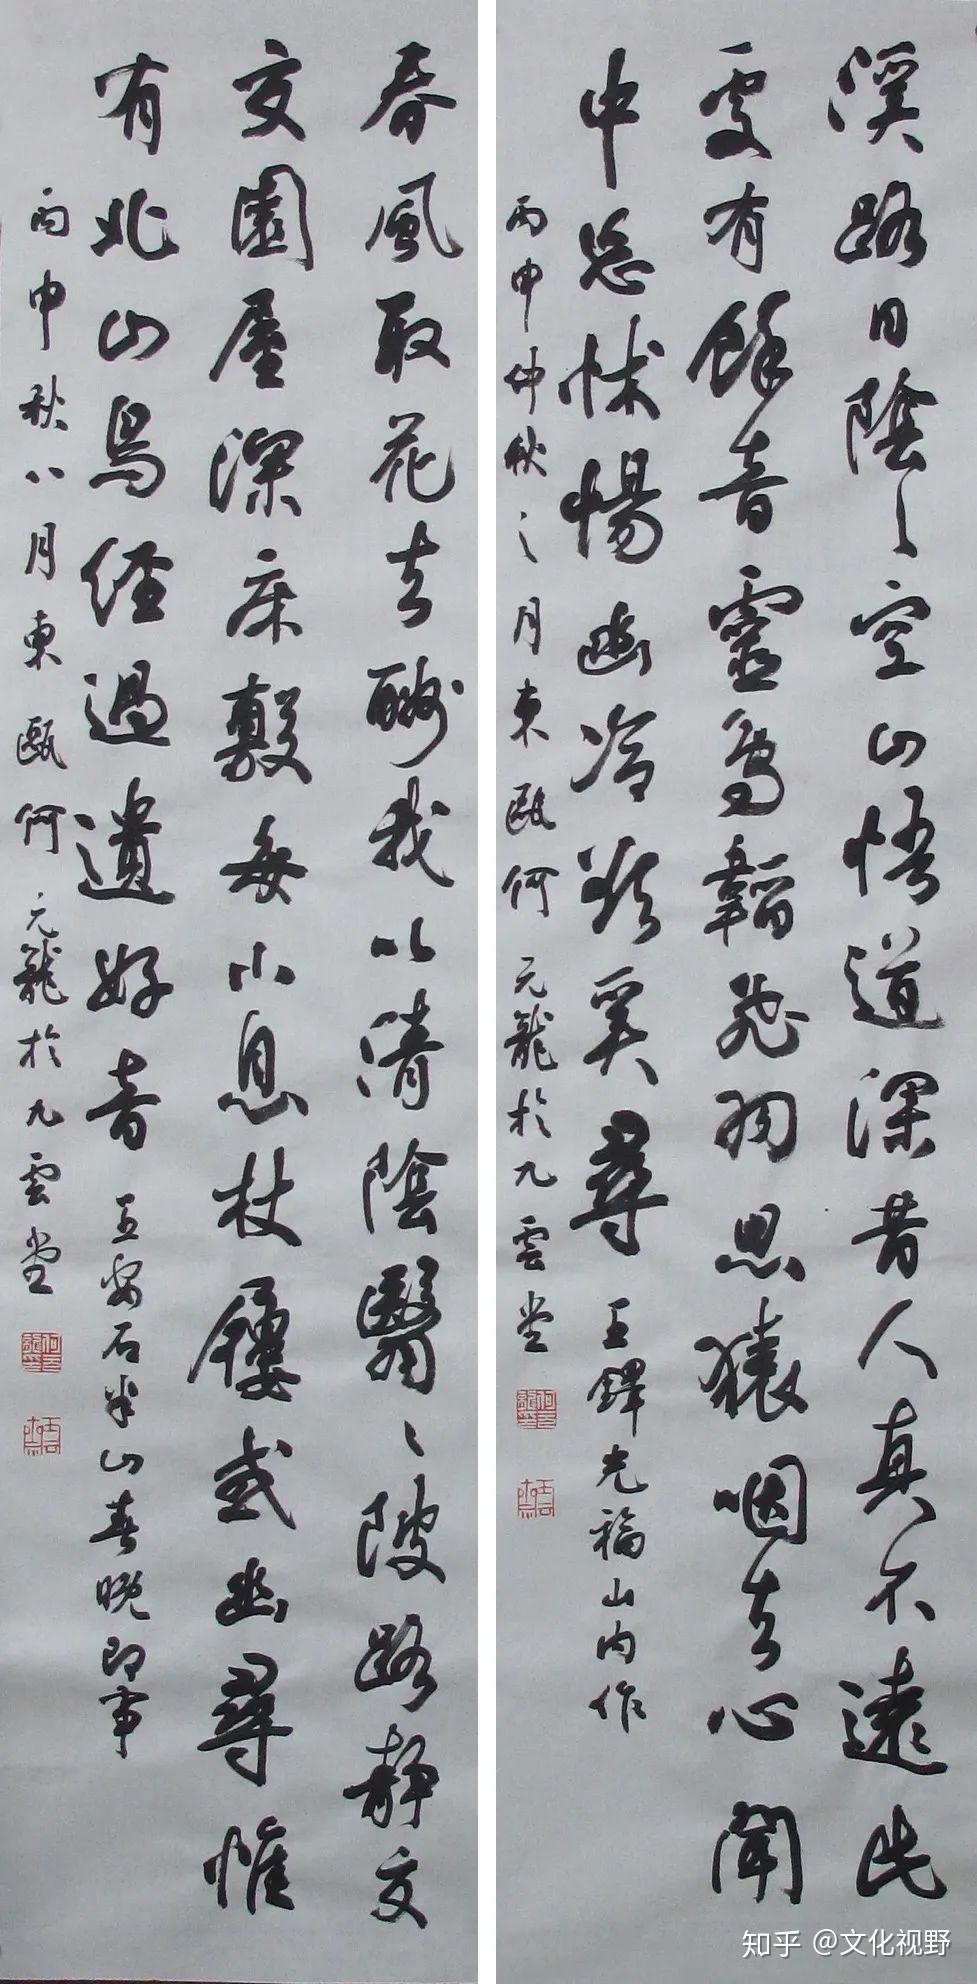 溪路日陰〻空山悟道深昔人真不遠此
處有餘音靈鳥韜飛羽思猿咽去心聞
中忽怵惕幽冷欲奚尋 王鐸光福山内作
丙申仲秋之月東甌何元龍於九雲堂
春風取花去酬我以清陰翳〻陂路靜交
交園屋深床敷每小息杖屨或幽尋惟
有北山鳥經過遺好音 王安石半山春晚即事
丙申秋八月東甌何元龍於九雲堂
知乎 @文化视野